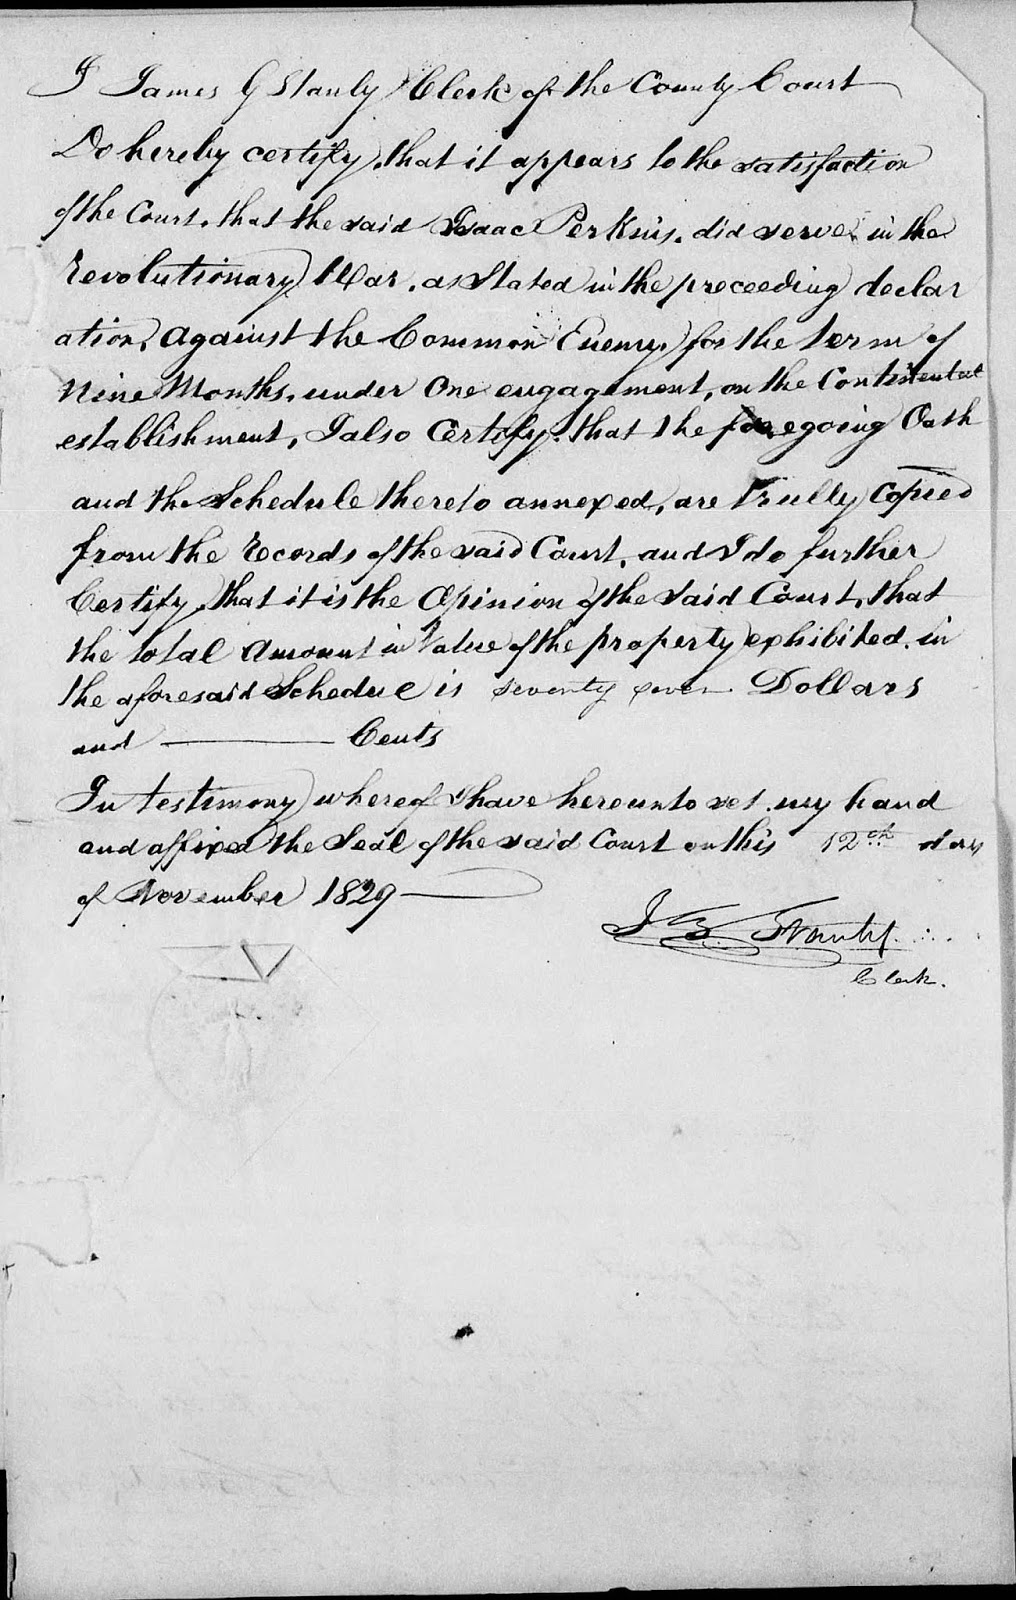 I James G Stanly Clerk of the County Court
Do hereby certify, that it appears to the satisfaction
of the Court, that the said Isaac Perkins, did serve, in the
Revolutionary War, as Stated in the preceeding declar
ation, against the Common Enemy, for the term of
Nine Months, under One engagement, on the Continental
establishment, I also Certify, that the foregoing Oath
and the Schedule thereto annexed, are trully Copied
from the Records of the said Court, and I do further
Certify, that it is the Opinion of the said Court, that
the total Amount in Value of the property exhibited, in
the aforesaid Schedule is seventy seven Dollars
and ——— Cents
In testimony whereof I have hereunto set my hand
and affixed the Seal of the said Court on this 12th day
of November 1829
J G Stanly
Clerk.